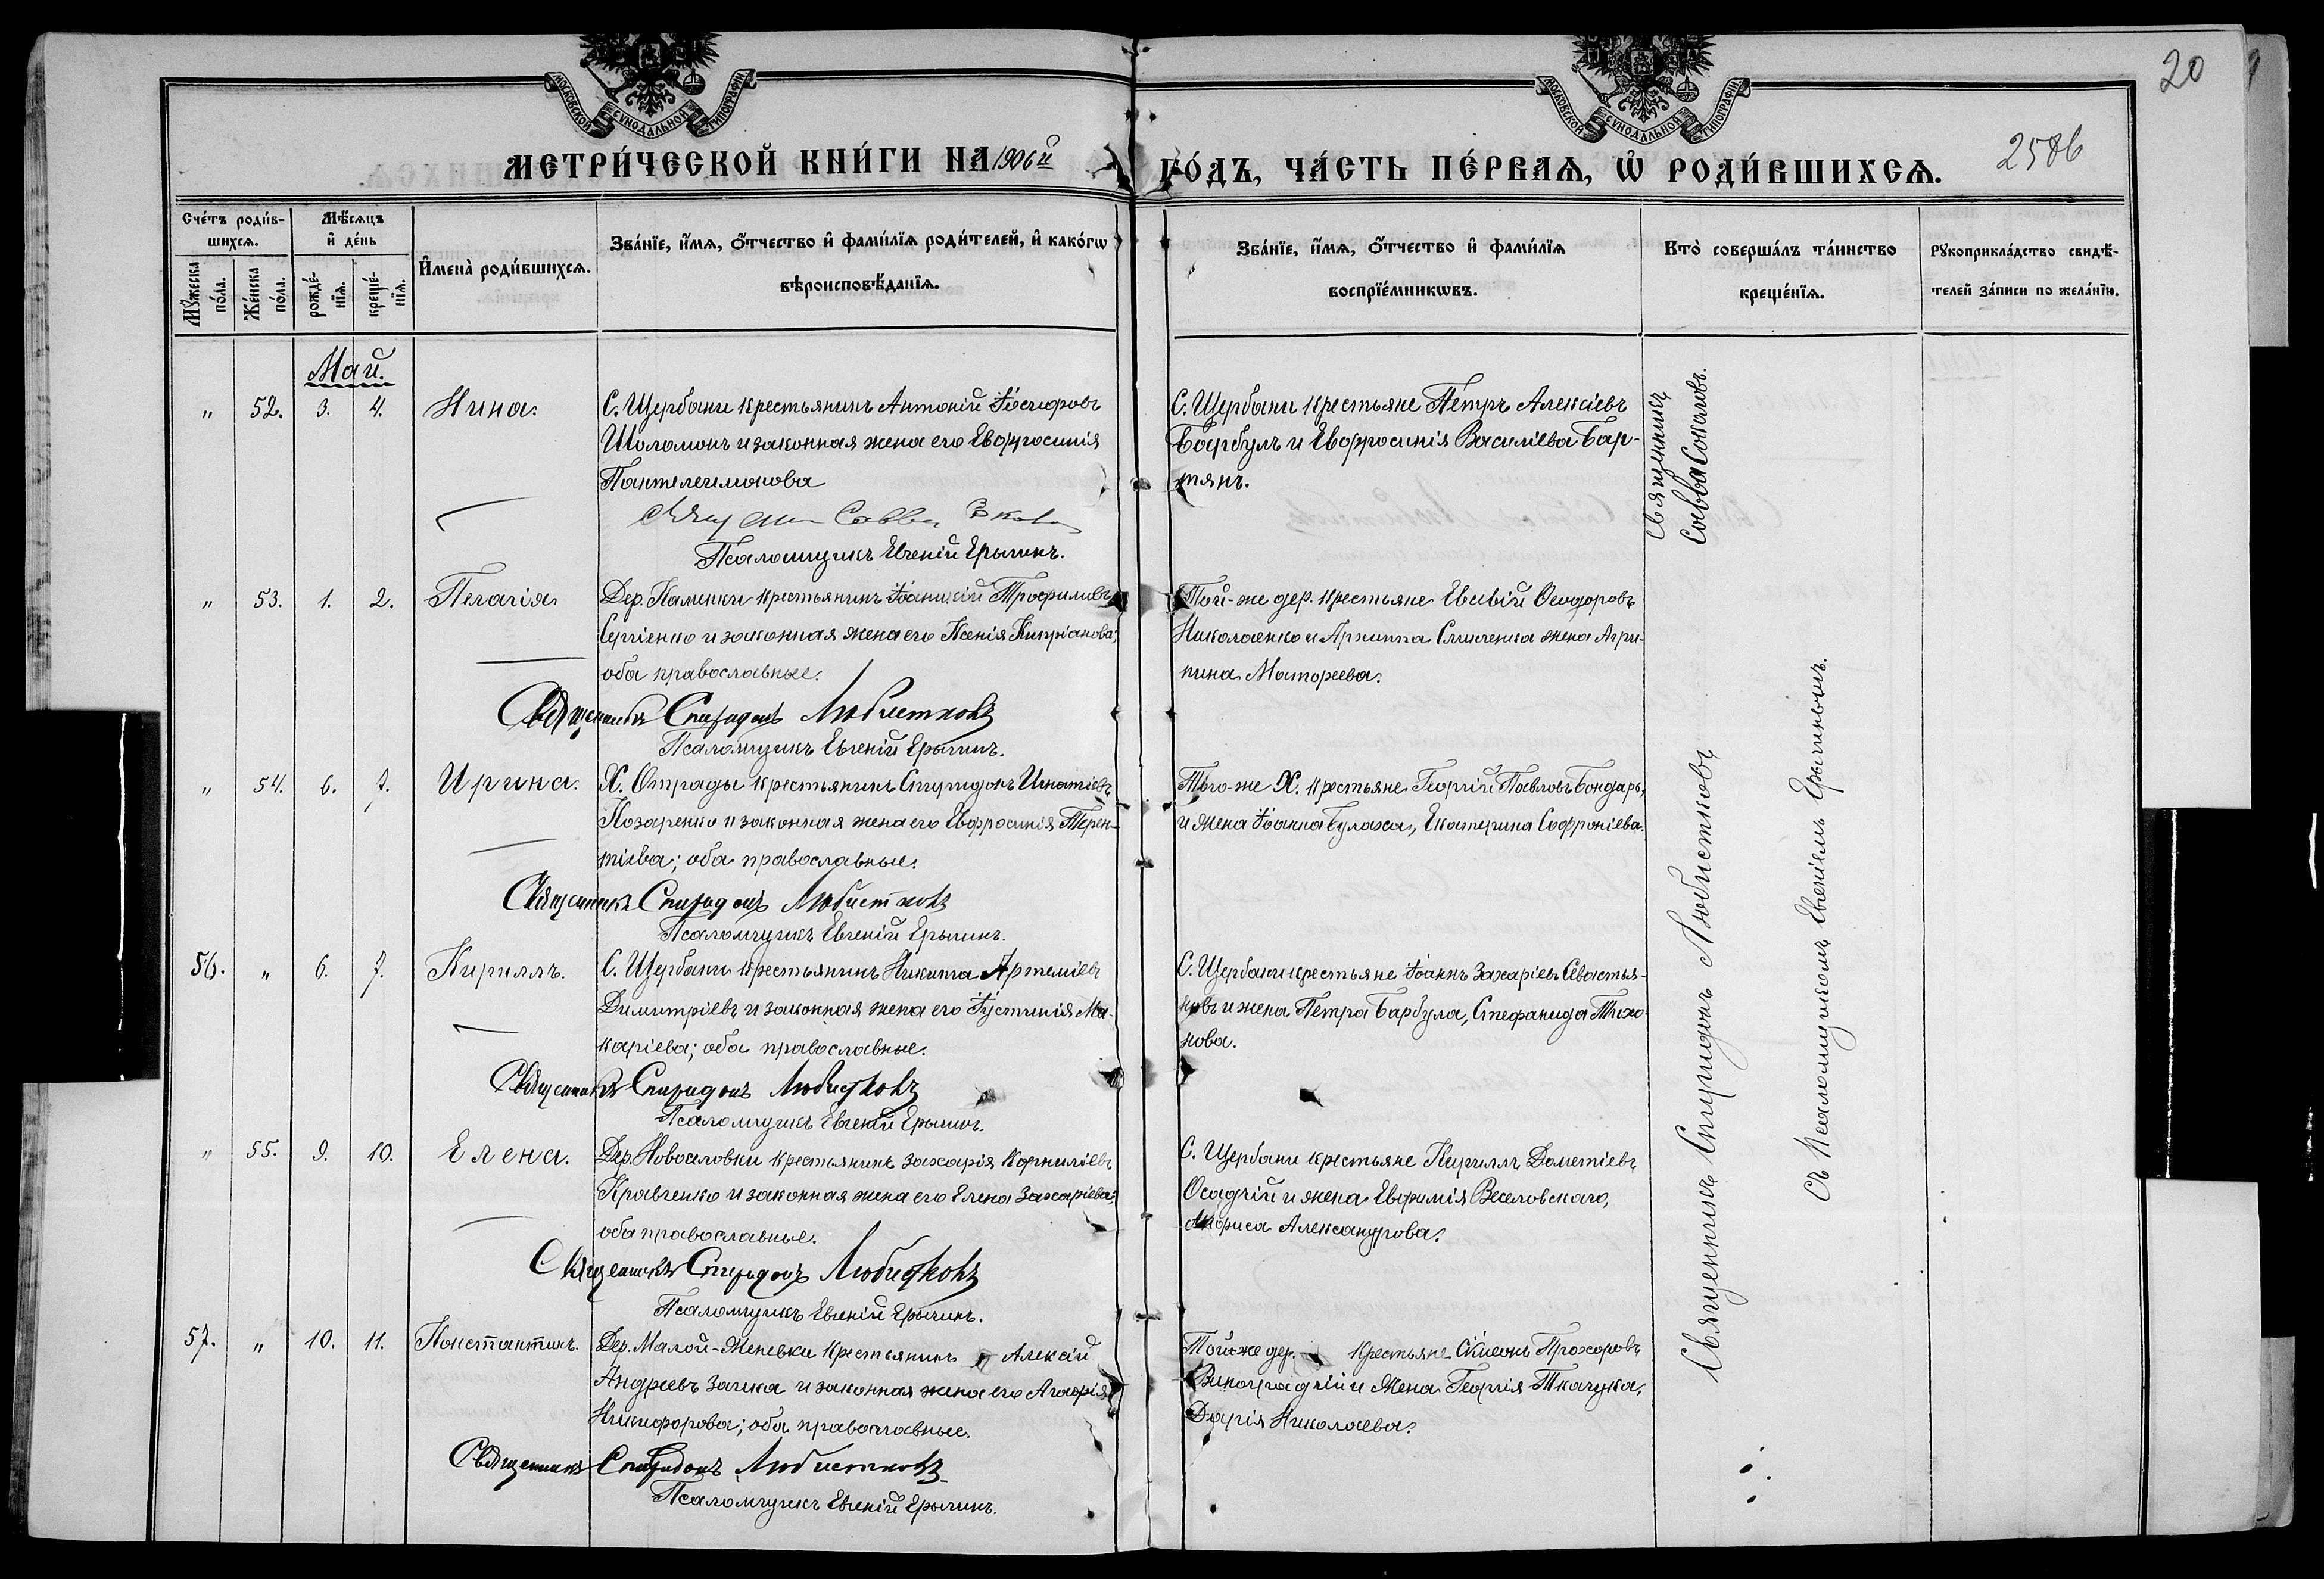 20
258б
МОСКОВСКОЙ СУНОДАЛЬНОЙ ТИПОГРАФІИ
МОСКОВСКОЙ СУНОДАЛЬНОЙ ТИПОГРАФІИ
МЕТРИ́ЧЕСКОЙ КНИ́ГИ НА 1906й ГО́ДЪ, ЧА́СТЬ ПЕ́РВАѦ, Ѡ РОДИ́ВШИХСѦ.
Сче́тъ роди́вшихсѧ.
Мѣ́сѧцъ и҆ де́нь
И҆мена̀ роди́вшихсѧ.
Зва́нїе, и҆́мѧ, ѻ҆́тчество и҆ фами́лїѧ роди́телей, и҆ како́гѡ
вѣроисповѣ́данїѧ.
Зва́нїе, и҆́мѧ, ѻ҆́тчество и҆ фами́лїѧ
воспрїе́мникѡвъ.
Кто̀ соверша́лъ та́инство
креще́нїѧ.
Рꙋкоприкла́дство свидѣ́-
телей за́писи по жела́нїю.
Мꙋ́жеска по́ла.
Же́нска по́ла.
рожде́-
нїѧ.
креще́-
нїѧ.
Май.
" 52. 3. 4. Нина.
С. Щербани крестьянинъ Антоній Ѳеодоровъ
Шоломонъ и законная жена его Евфросинія
Пантелеимонова
Псаломщикъ Евгеній Ерычинъ.
С. Щербани крестьяне Петръ Алексіевъ
Барбулъ и Евфросинія Василіева Бар-
тянъ.
Священникъ
Савва Соколовъ.
" 53. 1. 2. Пелагія.
Дер. Калинки крестьянинъ Іоаникій Трофимовъ
Сергіенко и законная жена его Ксенія Кипріанова;
оба православные.
Священникъ Спиридонъ Любистковъ
Псаломщикъ Евгеній Ерычинъ.
Той-же дер. крестьяне Евсевій Ѳеодоровъ
Николаенко и Архиппа жена Агри-
пина Матѳеева.
" 54. 6. 7. Ирина.
Х. Отрады крестьянинъ Спиридонъ Игнатіевъ
Козаренко и законная жена его Евфросинія Терен-
тіева; оба православные.
Священникъ Спиридонъ Любистковъ
Псаломщикъ Евгеній Ерычинъ.
Того-же Х. крестьяне Георгій Павловъ Бондарь,
и жена Іоанна Булаха, Екатерина Софроніева.
56. " 6. 7. Кириллъ.
С. Щербани крестьянинъ Никита Артеміевъ
Димитріевъ и законная жена его Іустинія Ма-
каріева; оба православные.
Священникъ Спиридонъ Любистковъ
Псаломщикъ Евгеній Ерычинъ.
С. Щербани крестьяне Іоаннъ Захаріевъ Севастья-
новъ и жена Петра Барбула, Стефанида Тихо-
нова.
" 55. 9. 10. Елена.
Дер. Новоселовки крестьянинъ Захарія Корниліевъ
Кравченко и законная жена его Елена Захаріева;
оба православные.
Священникъ Спиридонъ Любистковъ
Псаломщикъ Евгеній Ерычинъ.
С. Щербани крестьяне Кириллъ Дометіевъ
Осадчій и жена Евфимія Веселовскаго,
Анфиса Александрова.
57. " 10. 11. Константинъ.
Дер. Малой-Женевки крестьянинъ Алексій
Андреевъ Заика и законная жена его Агафія
Никифорова; оба православные.
Священникъ Спиридонъ Любистковъ
Псаломщикъ Евгеній Ерычинъ.
Той же дер. крестьяне Симеонъ Прохоровъ
Виноградчій и жена Георгія Ткачука,
Дарія Николаева.
Священникъ Спиридонъ Любистковъ
съ Псаломщикомъ Евгеніемъ Ерычинымъ.